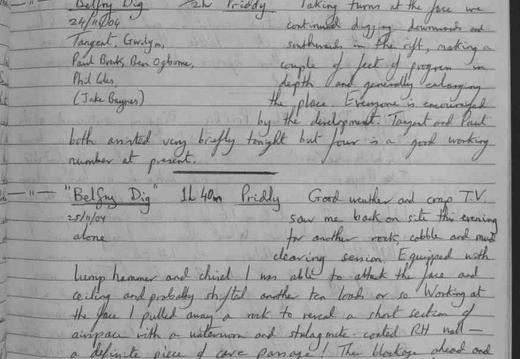 —"— Belfry Dig 2h Priddy Taking turns at the face we
24/11/04 continued digging downwards and
Tangent, Gwilym, southwards in the rift, making a
Paul Brock, Ben Ogborne, couple of feet of progress in
Phil Coles, depth and generally enlarging
(Jake Baynes) the place. Everyone is encouraged
by the development. Tangent and Paul
both assisted very briefly tonight but four is a good working
number at present.
—"— "Belfry Dig" 1h 40m Priddy Good weather and crap T.V.
25/11/04 saw me back on site this evening
alone for another rock, cobble and mud
clearing session. Equipped with
lump hammer and chisel I was able to attack the face and
ceiling and probably shifted another ten loads or so. Working at
the face I pulled away a rock to reveal a short section of
airspace with a waterworn and stalagmite-coated RH wall —
a definite piece of cave passage! The blockage ahead and